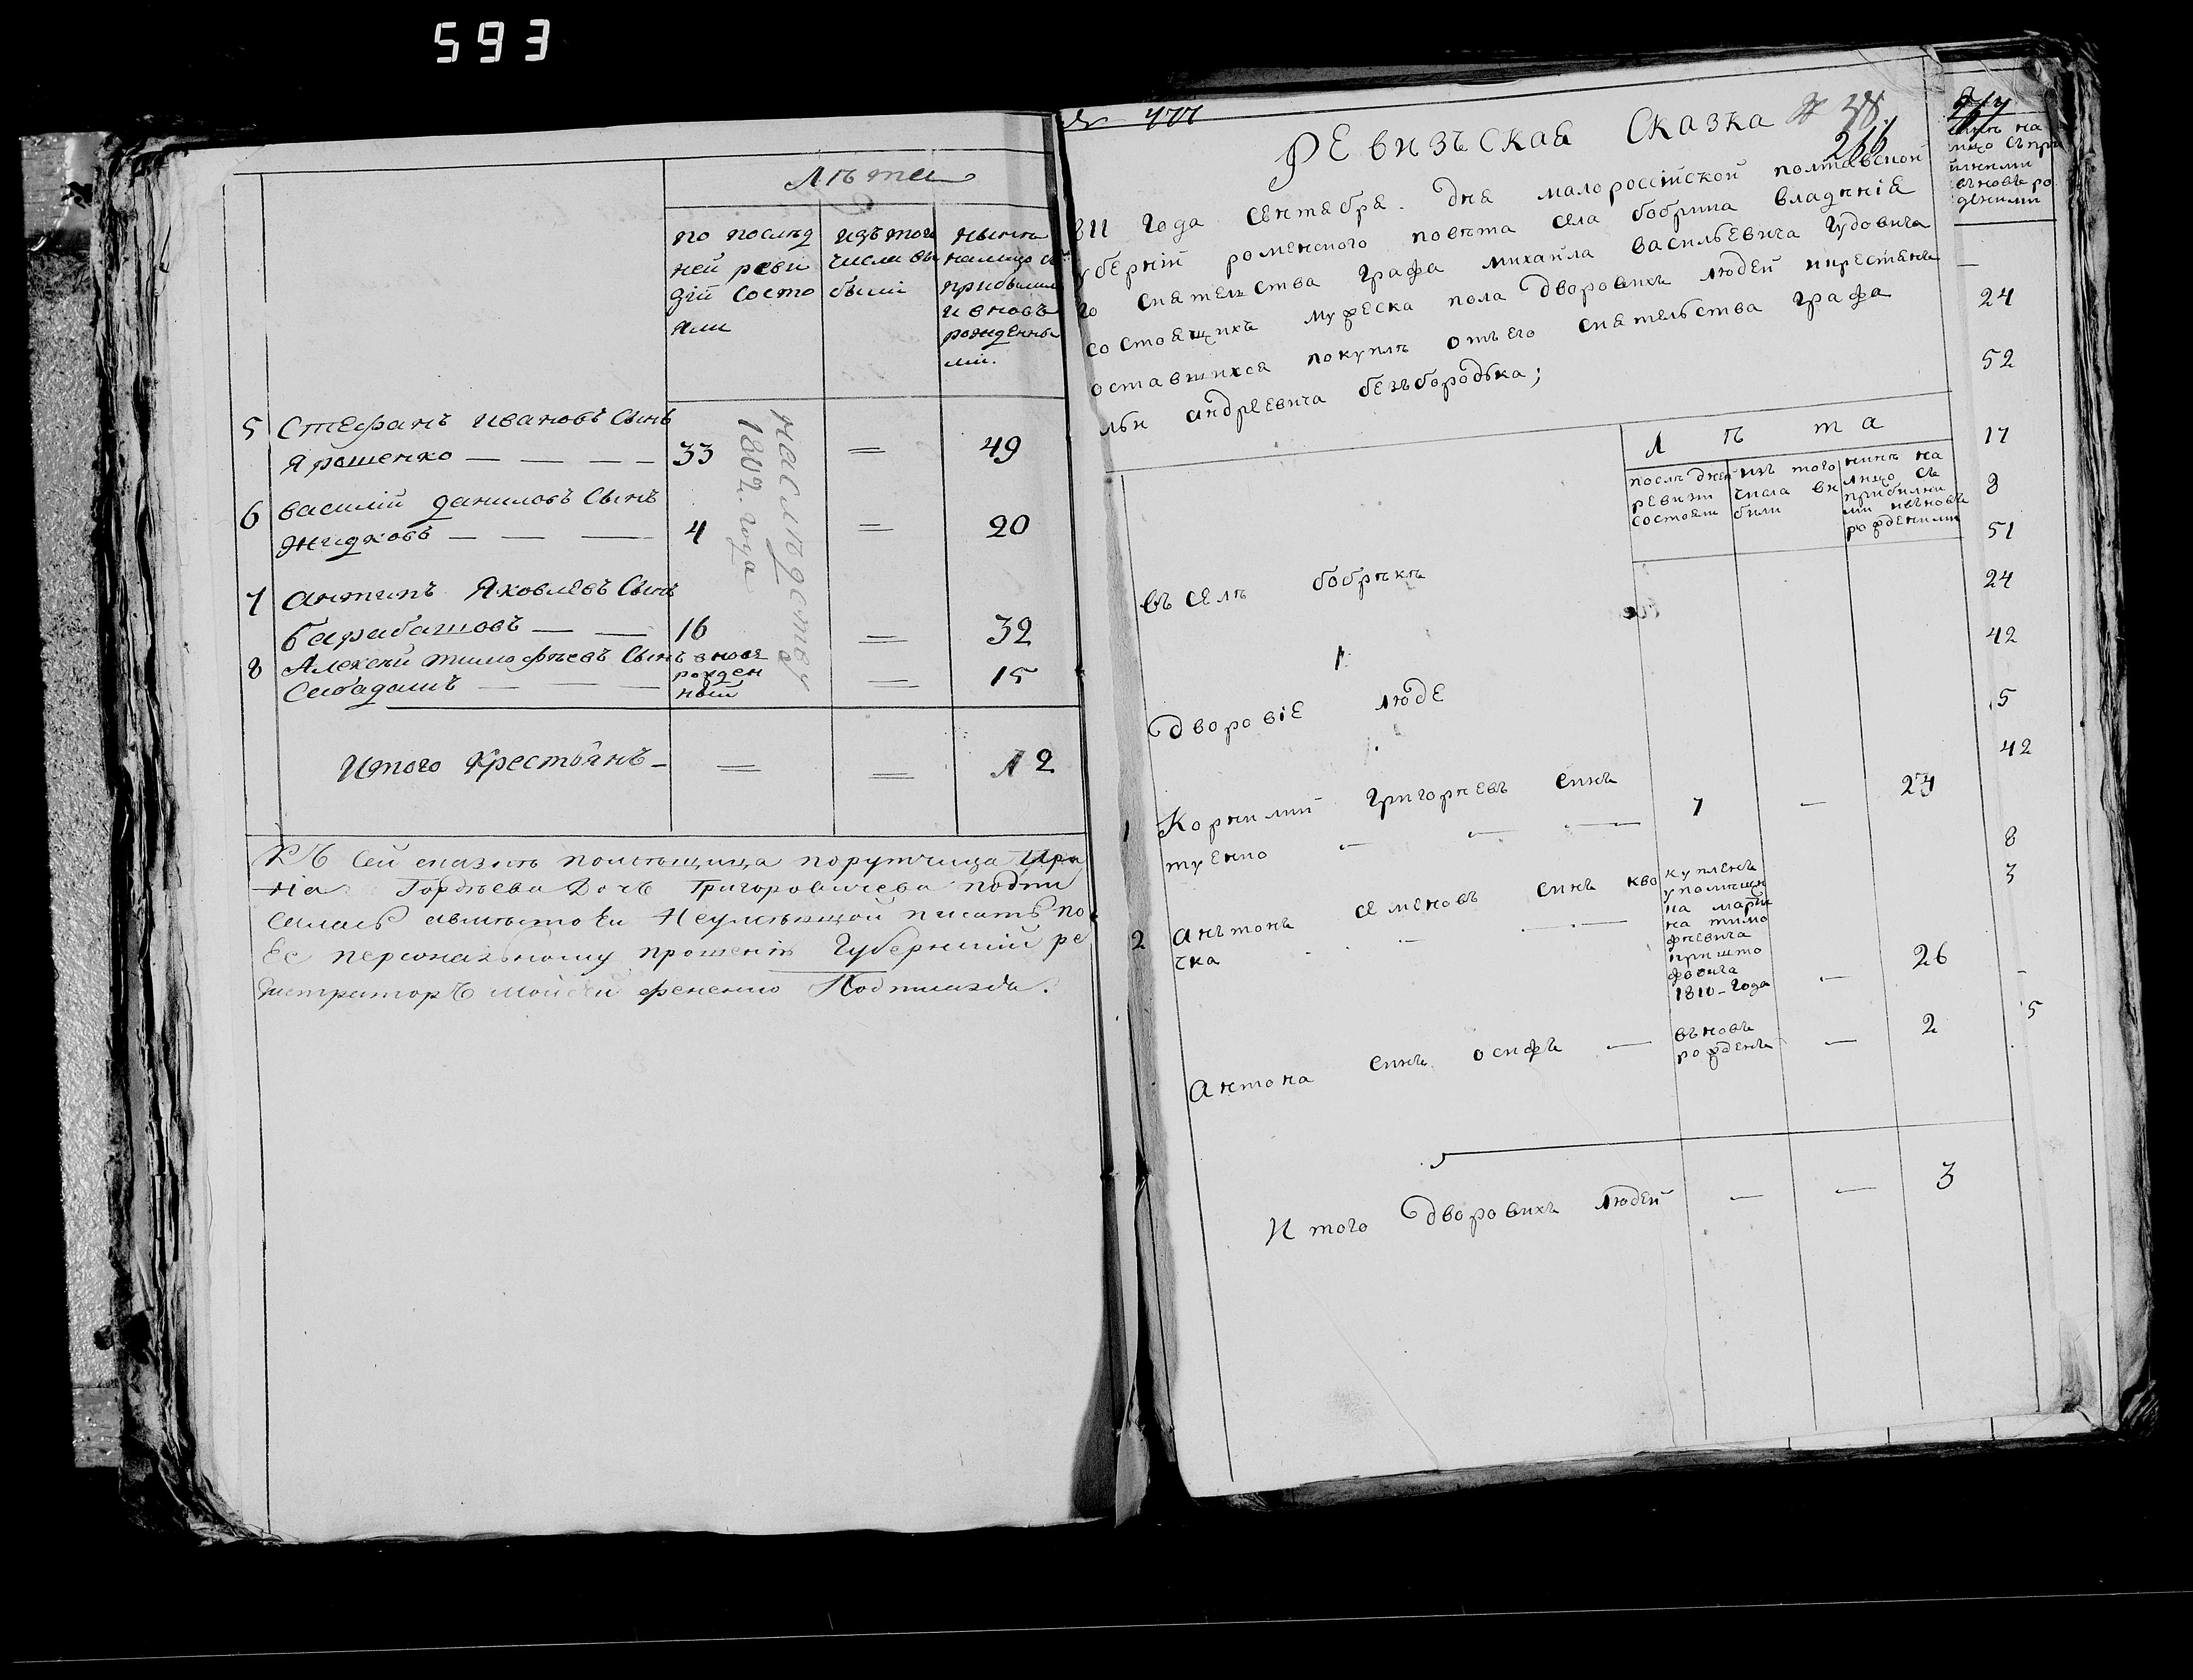 593
Лѣта
по послѣд
ней реви
зіи состо
яли
изъ того
числа вы
были
нынѣ
налицо съ
прибылы
и вновь
рожденны
ми.
наслѣдству
1802. года
5 Стефанъ ивановъ Сынъ
Ярошенко — — — — 33 = 49
6 василій даниловъ Сынъ
Жидковъ — — — 4 = 20
7 антипъ Яковлевъ Сынъ
барабашовъ — — 16 = 32
8 Алексѣй тимофѣевъ Сынъ вновь
рожден
Сабадашъ — — ный = 15
Итого Крестьянъ — = = 12
Къ сей сказкѣ помѣщица порутчица Ири
на Гордѣева Дочь Григоровичева подпи
салась а вмѣсто Ей Неумѣющой писать по
Ее персональному прошенію Губернскій ре
гистраторъ Мойсей
№ 477
РЕвизъская Сказка № 38.
266
811 Года Сентября. дня малороссійской полтавской
уберніи роменского повѣта села бобрика владѣнія
го сиятельства Графа михайла васильевича Гудовича
состоящихъ мужеска пола дворовихъ людей и крестянъ
оставшихся покуплѣ отъ его сиятельства графа
льи андреевича безъбородька;
Л ѣ т а
послѣдней
ревизи
состояли
изъ того
числа ви
били
нинѣ на
лицо съ
прибилими
ми и въновь
рожденими
въ селѣ бобрикѣ
1
дворовіе люде
1 Корнилий Григориевъ синъ
ткенко — — — 7 — 24
2 анътонъ семеновъ синъ кво
чка — —
купленъ
у помѣщи
на марти
на тимо
фѣевича
кришто
фовича
1810- Года — 26
Антона синъ осифъ — въновь
рожденъ — 2
И того дворовихъ людей — — 3
нинѣ на
лицо съ при
билими
въновь ро
жденими
—
24
52
17
8
51
24
42
5
42
8
3
—
5